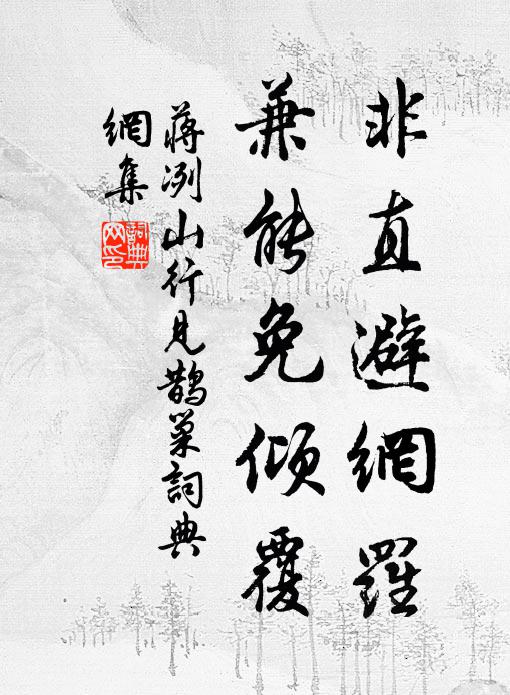 非直避網羅
兼能免傾覆
蔣冽山行見鵲巢詞典
網集
詞典網印